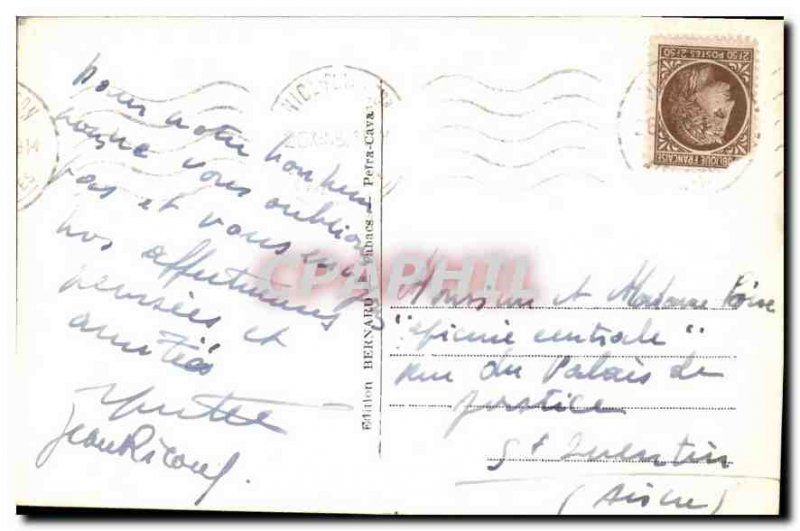 Dans notre bonheur
nous ne vous oublions
pas et vous
nos affectueuses
pensées et
amitiés
Yvette
Jean Ricouf
Edition BERNARD Tabacs - Peïra-Cava
CPAPHIL
2F50 POSTES 2F50
REPUBLIQUE FRANÇAISE
Monsieur et Madame
"épicerie centrale"
rue du Palais de
justice
St Quentin
(Aisne)